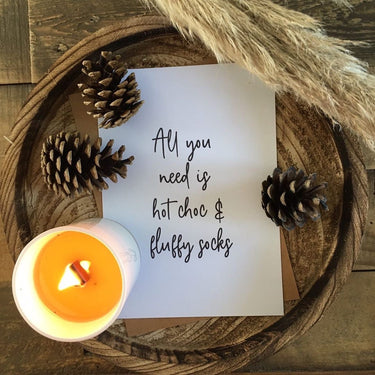 All you
need is
hot choc &
fluffy socks